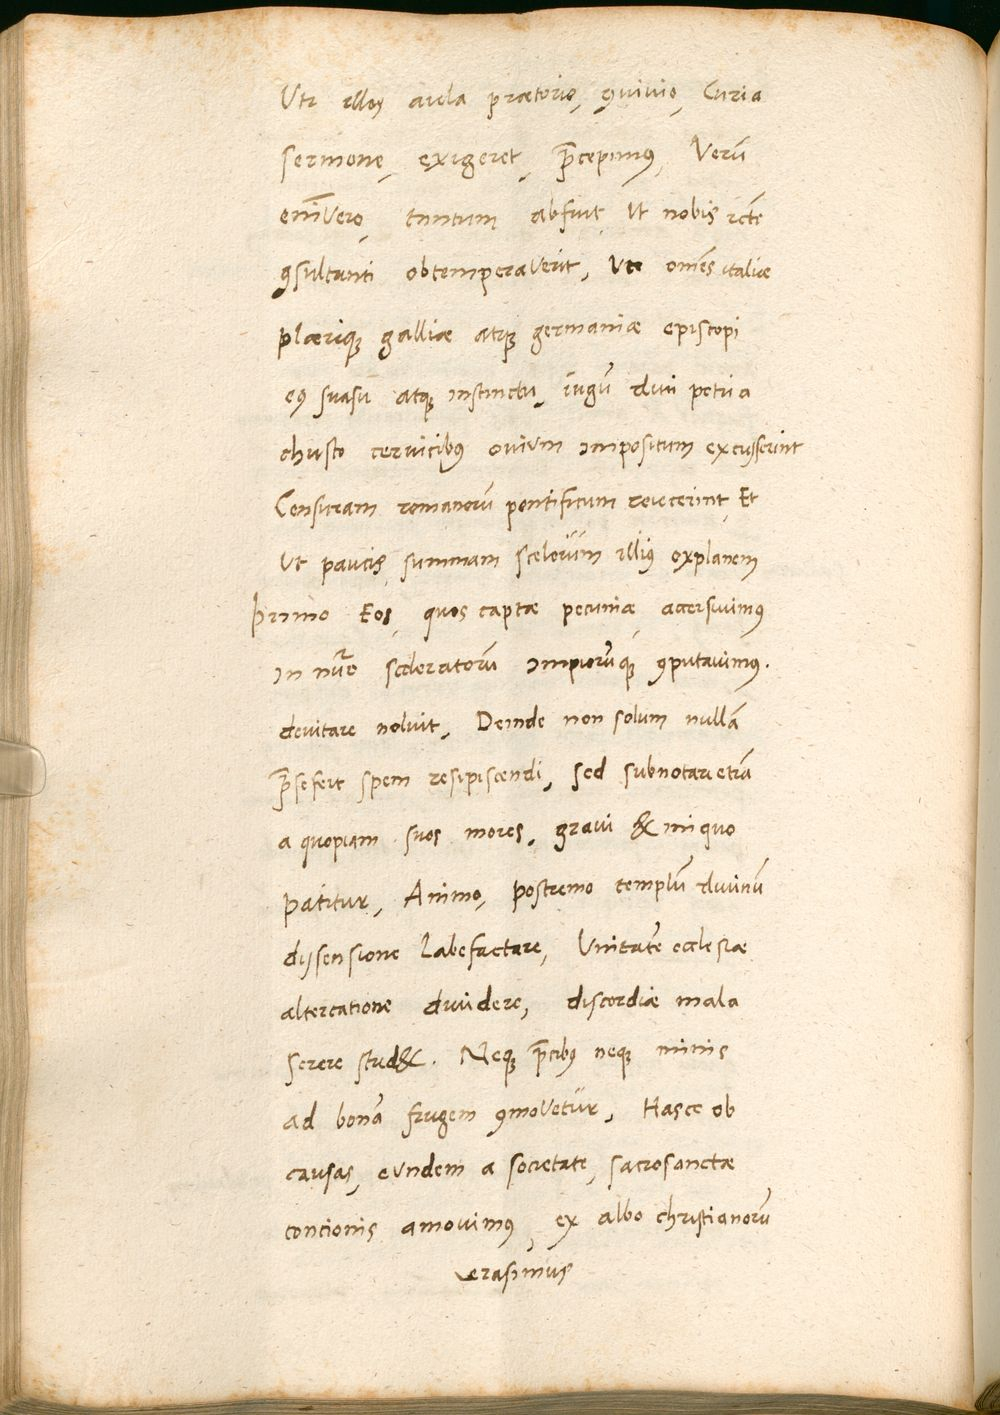 Uti illos aula prætorio, ꝯuiuio, Curia
sermone, exigeret, p̄cepimus, Verū
enīvero, tantum abfuit, Ut nobis rcte
ꝯsultanti obtemperaverit, Vti omēs italiæ
plærique galliæ atque germaniæ episcopi
eius suasu atque instinctu, iugū diui petri a
christo ceruicibus ouium impositum excusserint
Censuram romanorū pontificum reiecerint, Et
Ut paucis summam scelerum illius explanem
primo Eos, quos captæ pecuniæ accersiuimus
in nūero sceleratorū impiorūque ꝯputauimus.
deuitare noluit, Deinde non solum nullā
p̄sefert spem resipiscendi, sed subnotari etiā
a quopiam suos mores, graui & iniquo
patitur, Animo, postremo templū diuinū
dissensione Labefactare, Unitatē ecclesiæ
altercatione diuidere, discordiæ mala
serere stud&. Neque p̄cibus neque minis
ad bonā frugem ꝯmovetur, Hasce ob
causas, eundem a societate, sacrosanctæ
concionis amouimus, ex albo christianorū
erasimus